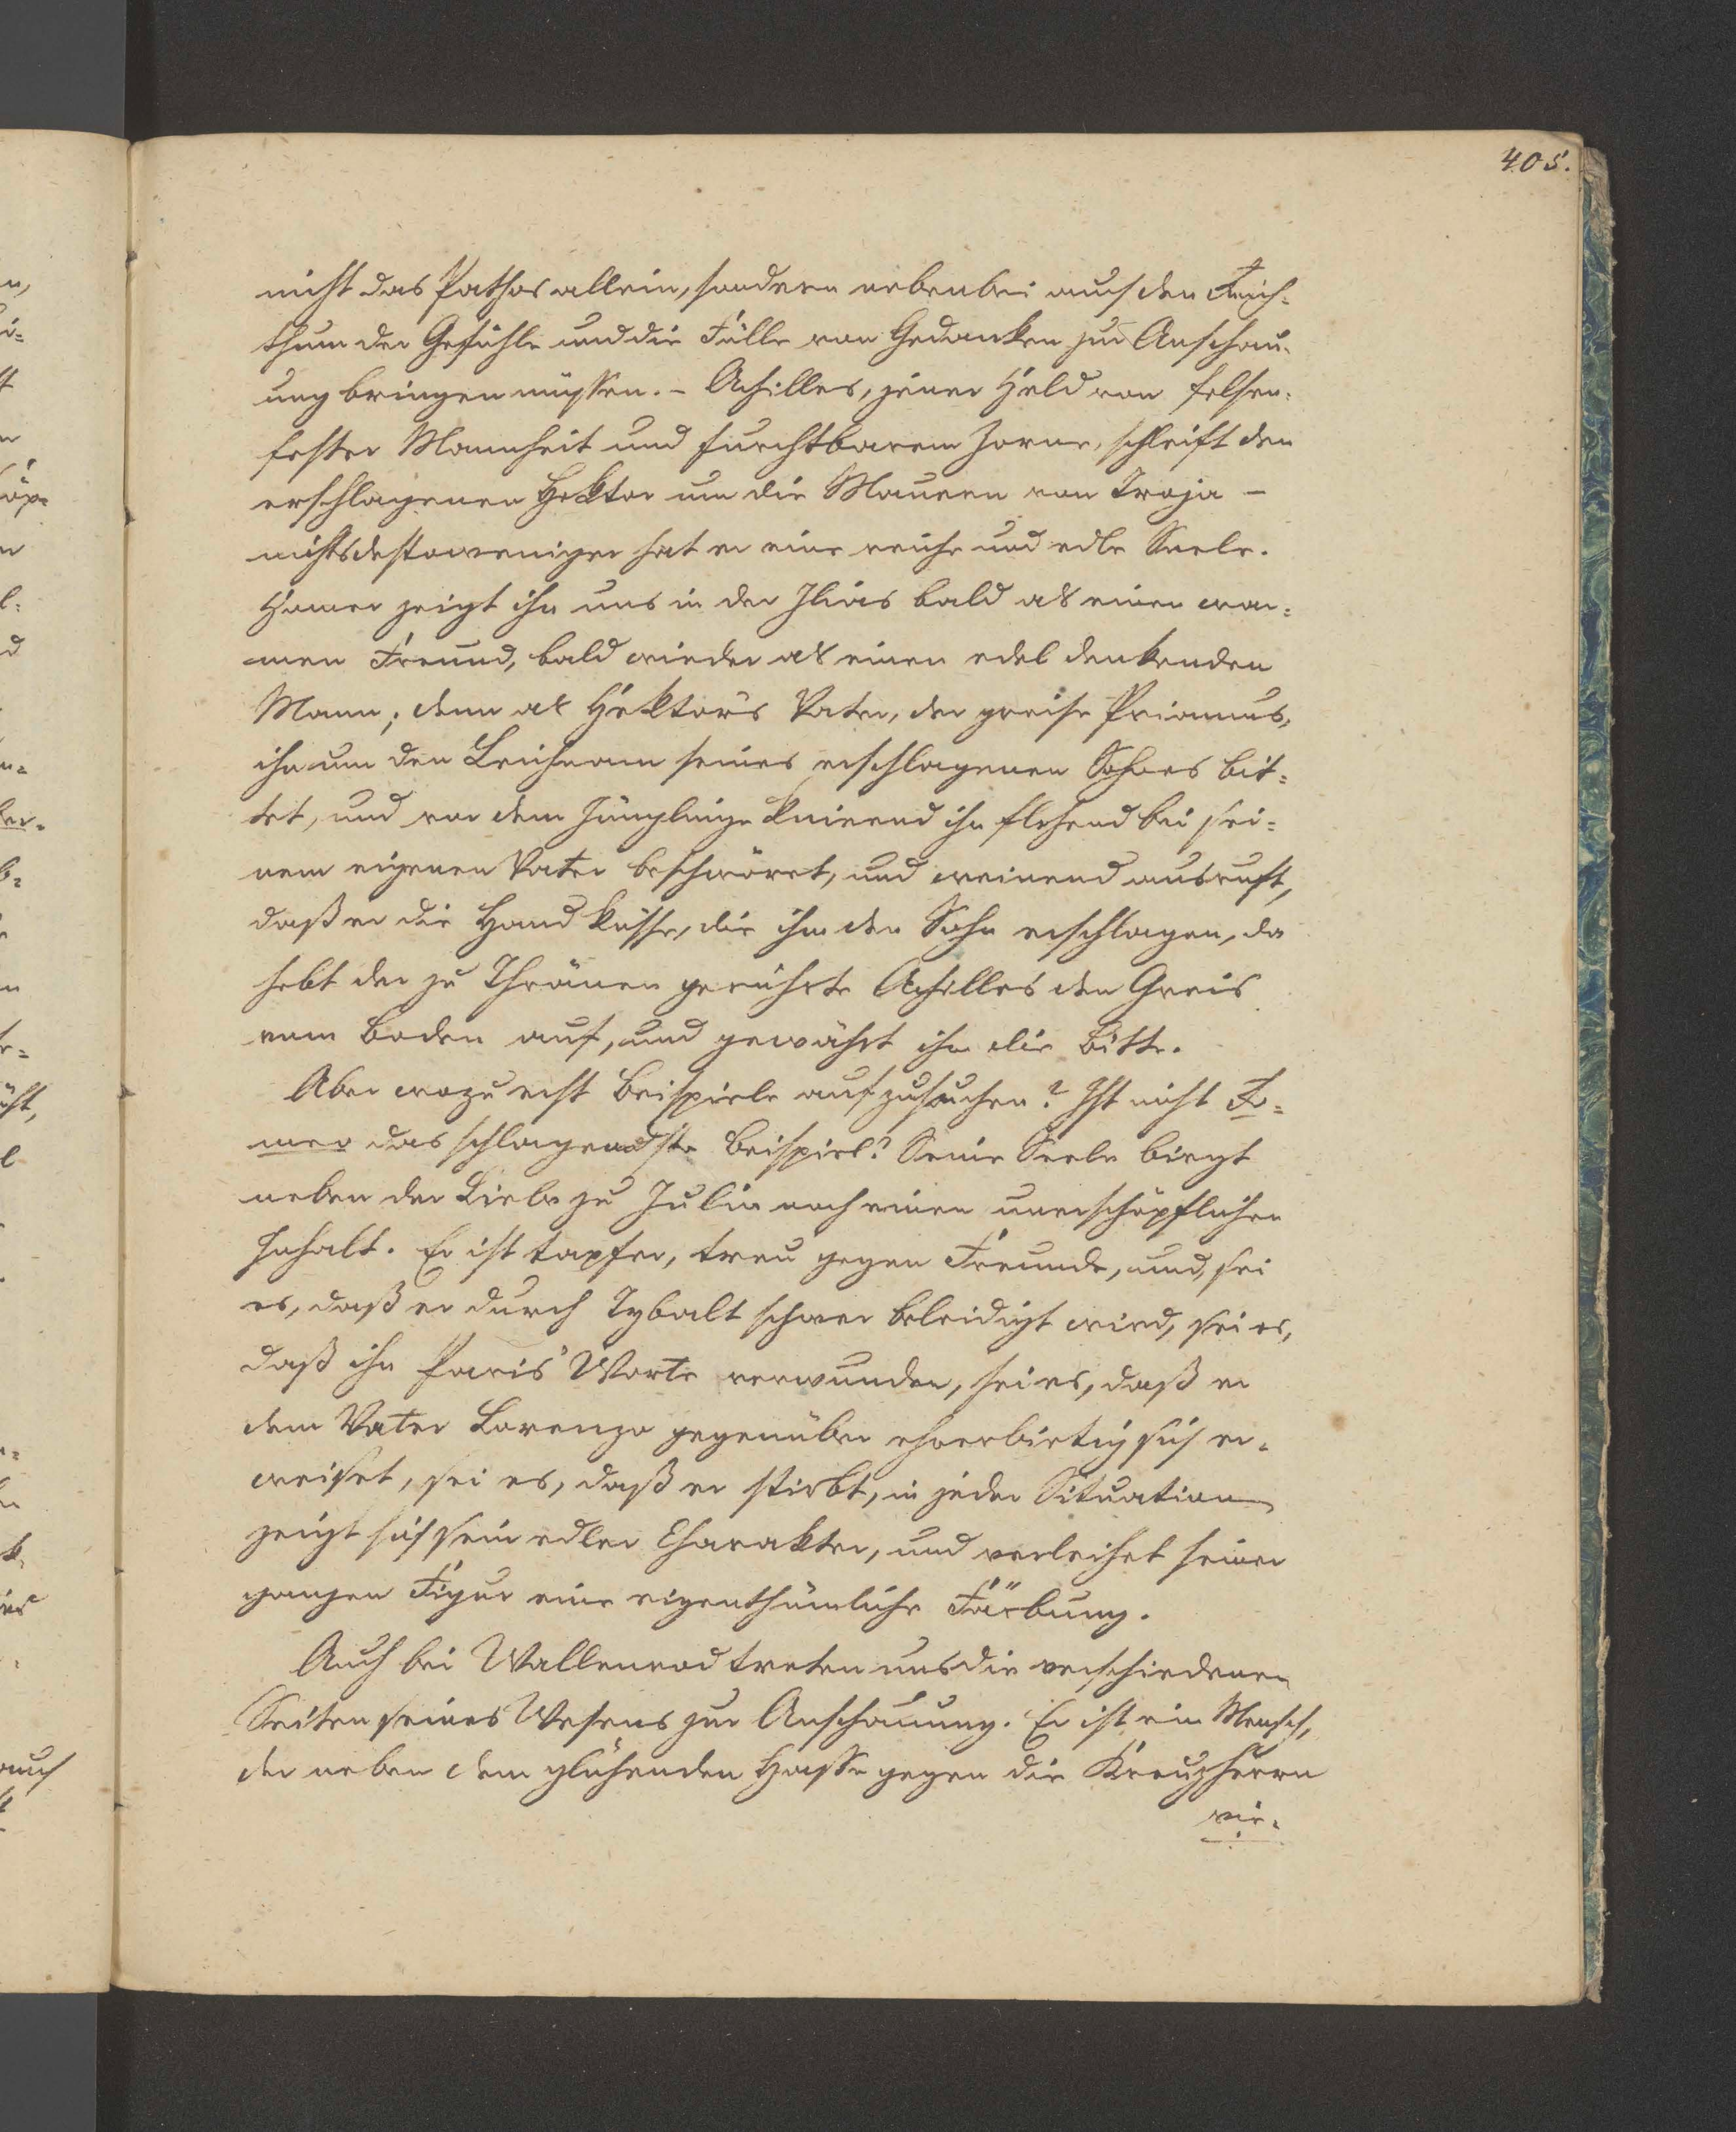 405.
nicht das Pathos allein, sondern nebenbei auch den Reich-
thum der Gefühle und die Fülle von Gedanken zur Anschau-
ung bringen müssen. – Achilles, jener Held von felsen-
fester Mannheit und furchtbarem Zorne, schleift den
erschlagenen Hektor um die Mauern von Troja –
nichtsdestoweniger hat er eine reiche und edle Seele.
Homer zeigt ihn uns in der Ilias bald als einen war-
men Freund, bald wieder als einen edel denkenden
Mann; denn als Hektor's Vater, der greise Priamus,
ihn um den Leichnam seines erschlagenen Sohnes bit-
tet, und vor dem Jünglinge knieend ihn flehend bei sei-
nem eigenen Vater beschwöret, und weinend ausruft,
daß er die Hand küsse, die ihm den Sohn erschlagen, da
hebt der zu Thränen gerührte Achilles den Greis
vom Boden auf, und gewährt ihm die Bitte.
Aber wozu erst Beispiele aufzusuchen? Ist nicht Ro-
meo das schlagendste Beispiel? Seine Seele birgt
neben der Liebe zu Julia noch einen unerschöpflichen
Inhalt. Er ist tapfer, treu gegen Freunde, und, sei
es, daß er durch Tybalt schwer beleidigt wird, sei es,
daß ihn Paris' Worte verwunden, sei es, daß er
dem Vater Lorenzo gegenüber ehrerbietig sich er-
weiset, sei es, daß er stirbt, in jeder Situation
zeigt sich sein edler Charakter, und verleihet seiner
ganzen Figur eine eigenthümliche Färbung.
Auch bei Wallenrod treten uns die verschiedenen
Seiten seines Wesens zur Anschauung. Er ist ein Mensch,
der neben dem glühenden Hasse gegen die Kreuzherrn